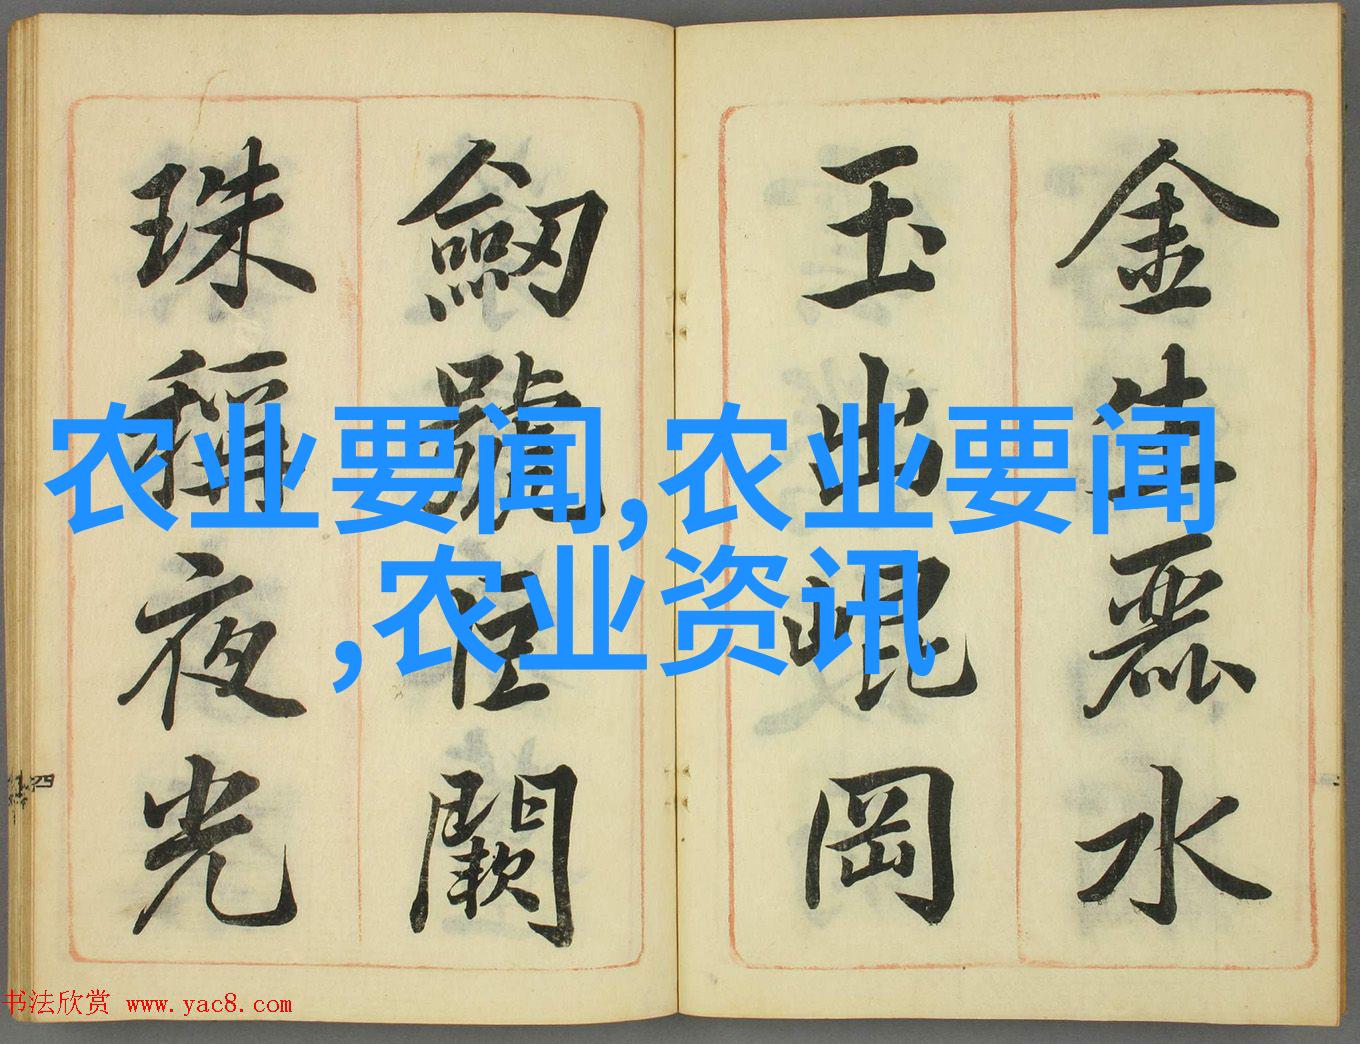 金生麗水
玉出崐岡
劒號巨闕
珠稱夜光
农业要闻,农业要闻
,农业资讯
四
书法欣赏 www.yac8.com